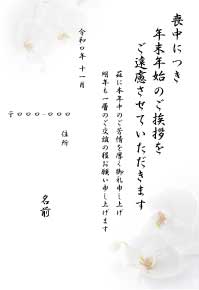 喪中につき
年末年始のご挨拶を
ご遠慮させていただきます
茲に本年中のご芳情を厚く御礼申し上げ
明年も一層のご交誼の程お願い申し上げます
令和〇年 十一月
〒〇〇〇-〇〇〇
住所
名前